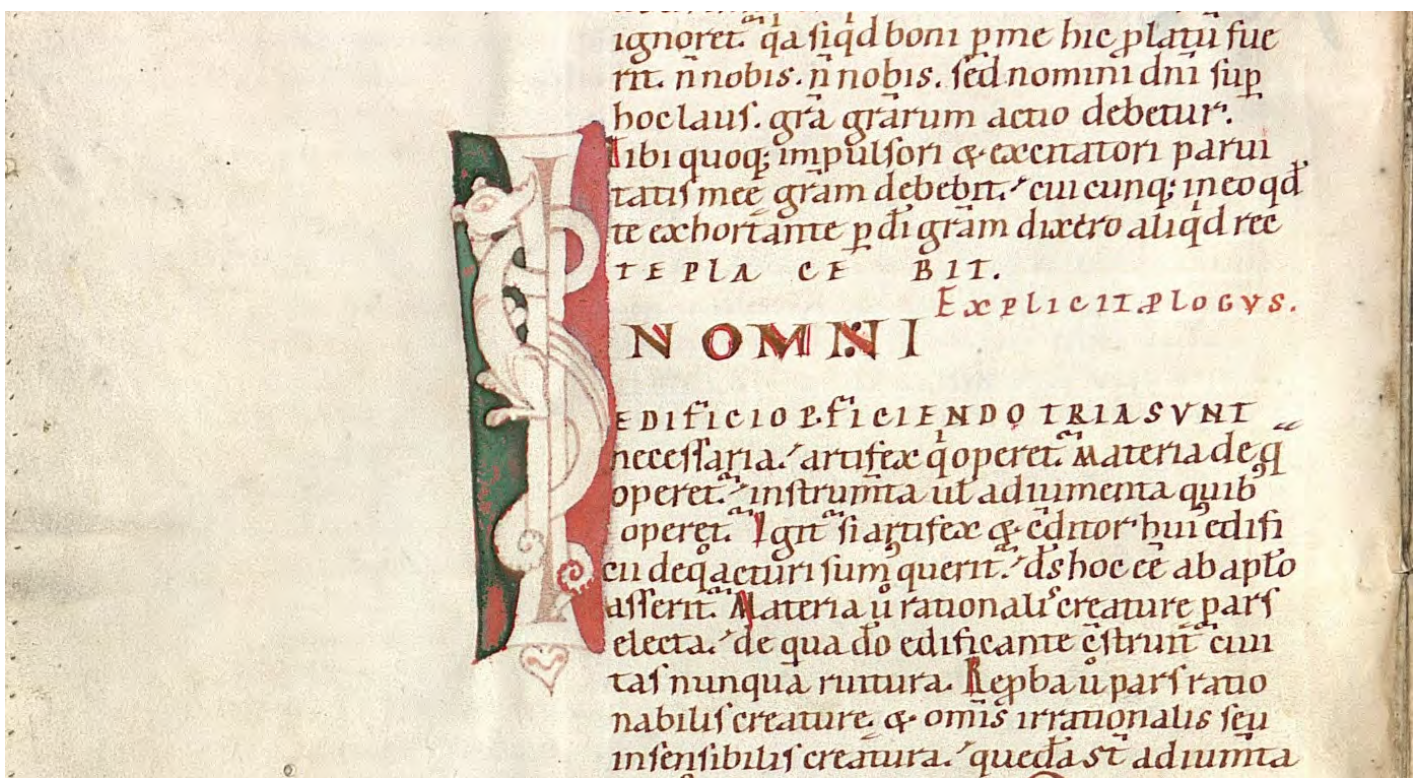 ignoret. q̅a siq̇d boni ꝑme hic ꝓlatu̅ fue
rit. n̅ nobis. n̅ nobis. sed nomini dn̅i sup̱
hoc laus. gr̅a gr̅arum actio debetur.
Tibi quoq; impulsori & excitatori parui
tatis meę gr̅am debebit. cui cunq; in eo qd̅
te exhortante ꝑ di̅ gr̅am dixero aliq̇d rec
TE PLA CE BIT.
EXPLICIT PLOGVS.
IN OMNI
EDIFICIO PFICIENDO TRIA SVNT
necessaria. artifex q̇ operet᷑. Materia de q̇
operet᷑. instrum̅ta ul̅ adiumenta quib᷒
operet᷑. Igit᷑ si artifex & c̅ditor hui᷒ edifi
cii de q̊ acturi sum᷒ querit᷑. ds̅ hoc ee̅ ab apl̅o
asserit᷑. Materia ů rationalis creature pars
electa. de qua do̅ edificante c̅struit᷑ ciui
tas nunqua̅ ruitura. Rep̱ba ů pars ratio
nabilis creature. & om̅is irrationalis seu
insensibilis creatura. queda̅ st̅ adium̅ta